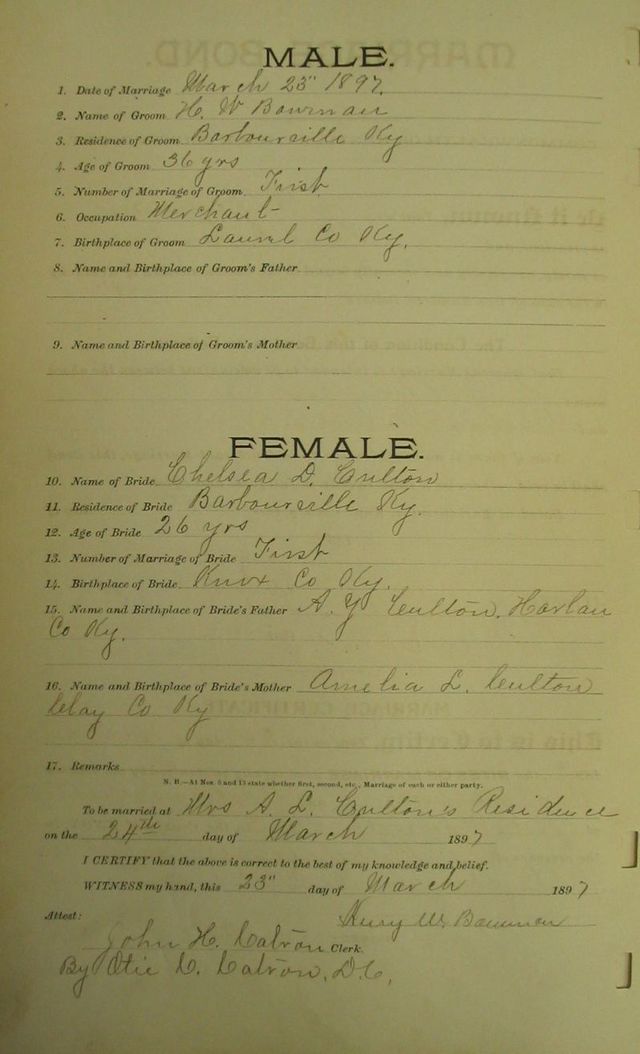 MALE.
1. Date of Marriage March 23" 1897.
2. Name of Groom H. W Bowman
3. Residence of Groom Barbourville Ky
4. Age of Groom 36 yrs
5. Number of Marriage of Groom First
6. Occupation Merchant
7. Birthplace of Groom Laurel Co Ky.
8. Name and Birthplace of Groom's Father
9. Name and Birthplace of Groom's Mother
FEMALE.
10. Name of Bride Chelsea D. Culton
11. Residence of Bride Barbourville Ky.
12. Age of Bride 26 yrs
13. Number of Marriage of Bride First
14. Birthplace of Bride Knox Co Ky.
15. Name and Birthplace of Bride's Father A. Y Culton. Harlan
Co Ky.
16. Name and Birthplace of Bride's Mother Amelia L. Culton
Clay Co Ky
17. Remarks
N. B.—At Nos. 5 and 13 state whether first, second, etc., Marriage of each or either party.
To be married at Mrs A. L. Culton's Residence
on the 24th day of March 1897
I CERTIFY that the above is correct to the best of my knowledge and belief.
WITNESS my hand, this 23" day of March 1897
Attest: Henry W. Bowman
John H. Catron Clerk.
By Otie C. Catron, D.C.